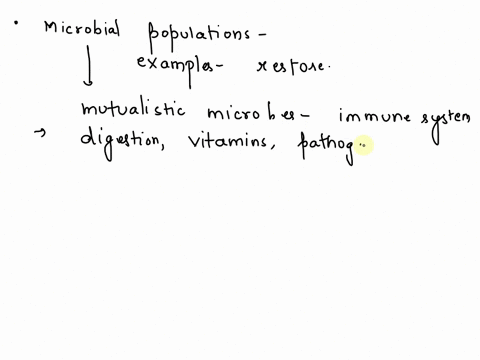 • Microbial populations -
examples- restore.
mutualistic microbes- immune system,
→ digestion, vitamins, pathog